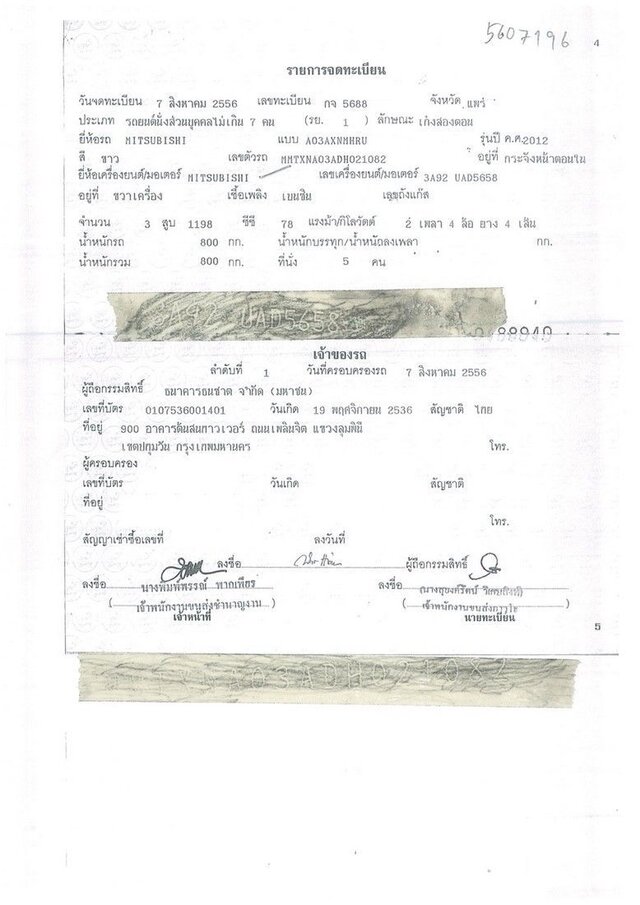 5607196
4
รายการจดทะเบียน
วันจดทะเบียน 7 สิงหาคม 2556 เลขทะเบียน กจ 5688 จังหวัด แพร่
ประเภท รถยนต์นั่งส่วนบุคคลไม่เกิน 7 คน (รย. 1 ) ลักษณะ เก๋งสองตอน
ยี่ห้อรถ MITSUBISHI แบบ A03AXNMHRU รุ่นปี ค.ศ.2012
สี ขาว เลขตัวรถ MMTXNA03ADH021082 อยู่ที่ กระจังหน้าตอนใน
ยี่ห้อเครื่องยนต์/มอเตอร์ MITSUBISHI เลขเครื่องยนต์/มอเตอร์ 3A92 UAD5658
อยู่ที่ ขวาเครื่อง เชื้อเพลิง เบนซิน เลขถังแก๊ส
จำนวน 3 สูบ 1198 ซีซี 78 แรงม้า/กิโลวัตต์ 2 เพลา 4 ล้อ ยาง 4 เส้น
น้ำหนักรถ 800 กก. น้ำหนักบรรทุก/น้ำหนักลงเพลา กก.
น้ำหนักรวม 800 กก. ที่นั่ง 5 คน
3A92 UAD5658
เจ้าของรถ
ลำดับที่ 1 วันที่ครอบครองรถ 7 สิงหาคม 2556
ผู้ถือกรรมสิทธิ์ ธนาคารธนชาต จำกัด (มหาชน)
เลขที่บัตร 0107536001401 วันเกิด 19 พฤศจิกายน 2536 สัญชาติ ไทย
ที่อยู่ 900 อาคารต้นสนทาวเวอร์ ถนนเพลินจิต แขวงลุมพินี
เขตปทุมวัน กรุงเทพมหานคร โทร.
ผู้ครอบครอง
เลขที่บัตร วันเกิด สัญชาติ
ที่อยู่
โทร.
สัญญาเช่าซื้อเลขที่ ลงวันที่
ลงชื่อ ผู้ถือกรรมสิทธิ์
ลงชื่อ นางพิมพ์พรรณ์ ลงชื่อ
(เจ้าพนักงานขนส่งชำนาญงาน)
เจ้าหน้าที่ นายทะเบียน
5